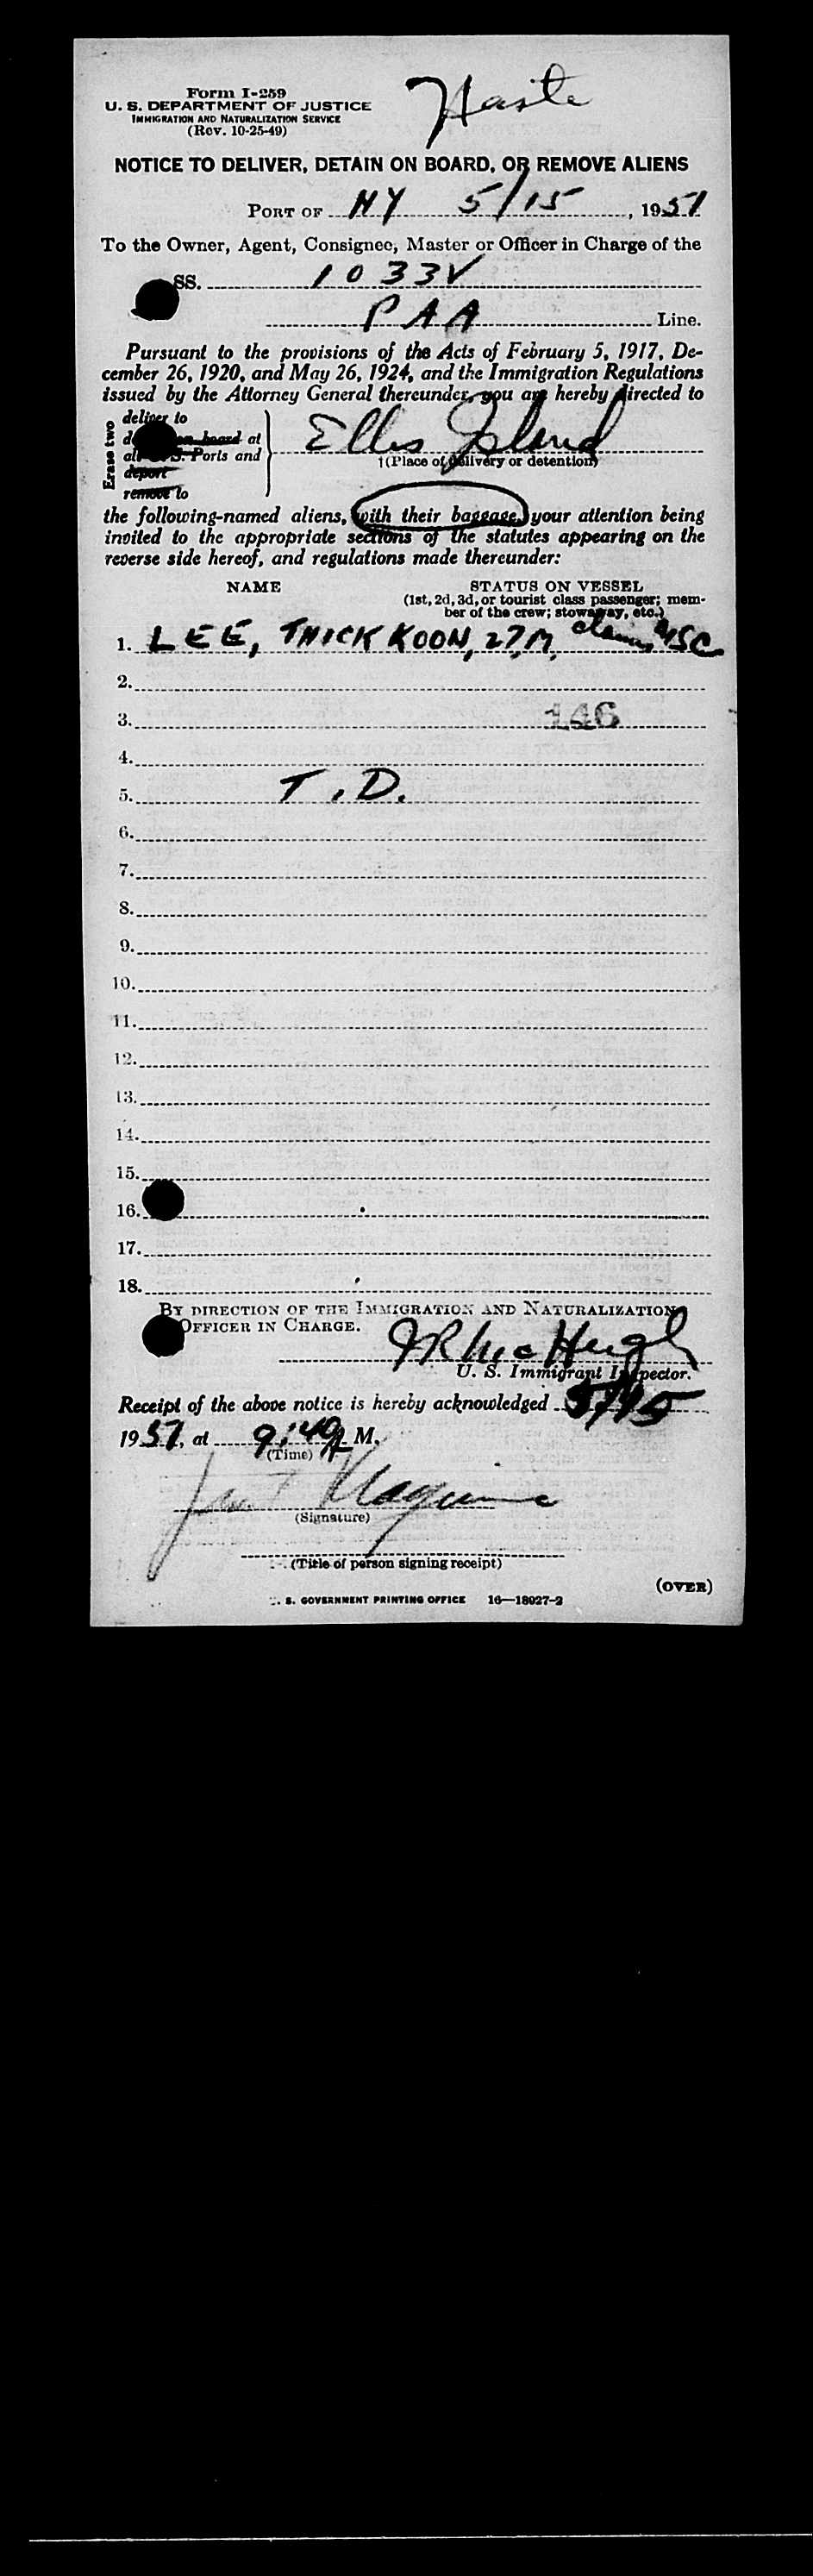 Form I-259
U. S. DEPARTMENT OF JUSTICE
IMMIGRATION AND NATURALIZATION SERVICE
(Rev. 10-25-49)
Haste
NOTICE TO DELIVER, DETAIN ON BOARD, OR REMOVE ALIENS
PORT OF NY 5/15, 1951
To the Owner, Agent, Consignee, Master or Officer in Charge of the
SS. 1033V
PAA Line.
Pursuant to the provisions of the Acts of February 5, 1917, De-
cember 26, 1920, and May 26, 1924, and the Immigration Regulations
issued by the Attorney General thereunder, you are hereby directed to
Erase two
deliver to
on board at
Ports and
deport
remove to
Ellis Island
†(Place of delivery or detention)
the following-named aliens, with their baggage, your attention being
invited to the appropriate sections of the statutes appearing on the
reverse side hereof, and regulations made thereunder:
NAME
STATUS ON VESSEL
(1st, 2d, 3d, or tourist class passenger; mem-
ber of the crew; stowaway, etc.)
1. LEE, THICK KOON, 27, M, claims USC
2.
3. 146
4.
5. T. D.
6.
7.
8.
9.
10.
11.
12.
13.
14.
15.
16.
17.
18.
BY DIRECTION OF THE IMMIGRATION AND NATURALIZATION
OFFICER IN CHARGE.
JR McHugh
U. S. Immigrant Inspector.
Receipt of the above notice is hereby acknowledged 5/15
1951, at 9:40 A M.
(Time)
Maguire
(Signature)
(Title of person signing receipt)
(OVER)
U. S. GOVERNMENT PRINTING OFFICE 16—18027-2